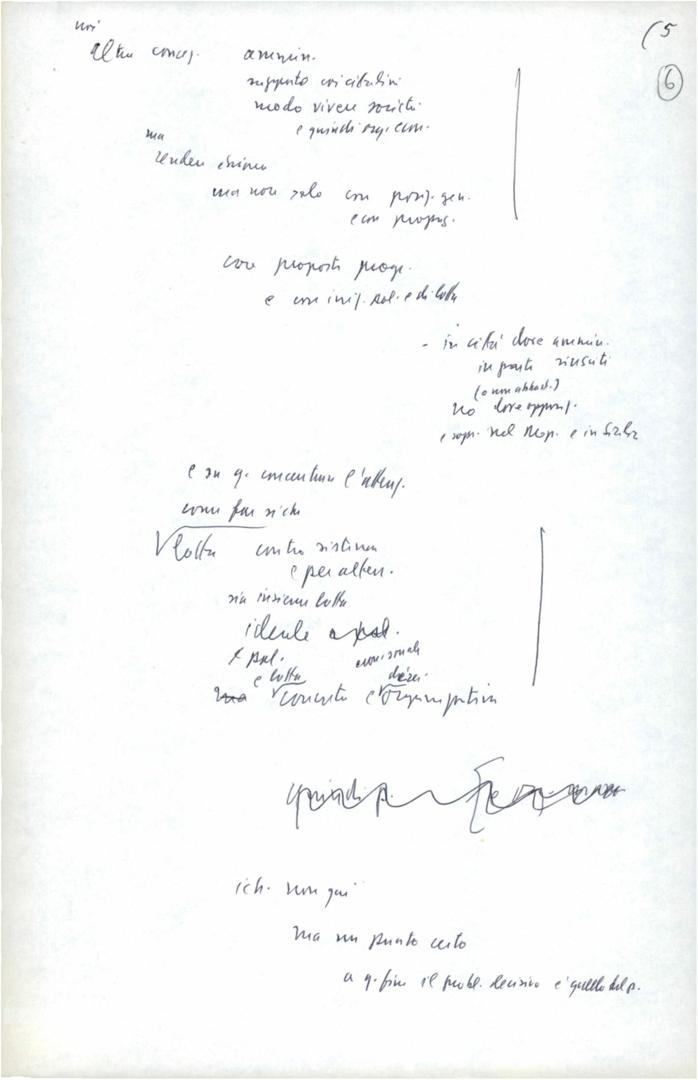 noi
(5
altra concez. ammin.
6
rapporto coi cittadini
modo vivere società
e quindi org. econ.
ma
rendere
ma non solo con posiz. gen.
e con propag.
con proposte progr.
e con iniz. pol. e di lotta
- in città dove ammin.
in parte riusciti
(o non abbast.)
no dove opposiz.
e sopr. nel Mezz. e in Sicilia
e su q. concentrare l'attenz.
come far sì che
lotta contro sistema
e per altern.
sia insieme lotta
ideale e pol.
e pol.
e lotta
ma concreta e organizzativa
quindi p.
ich. non qui
ma un punto certo
a q. fine il probl. decisivo è quello del p.